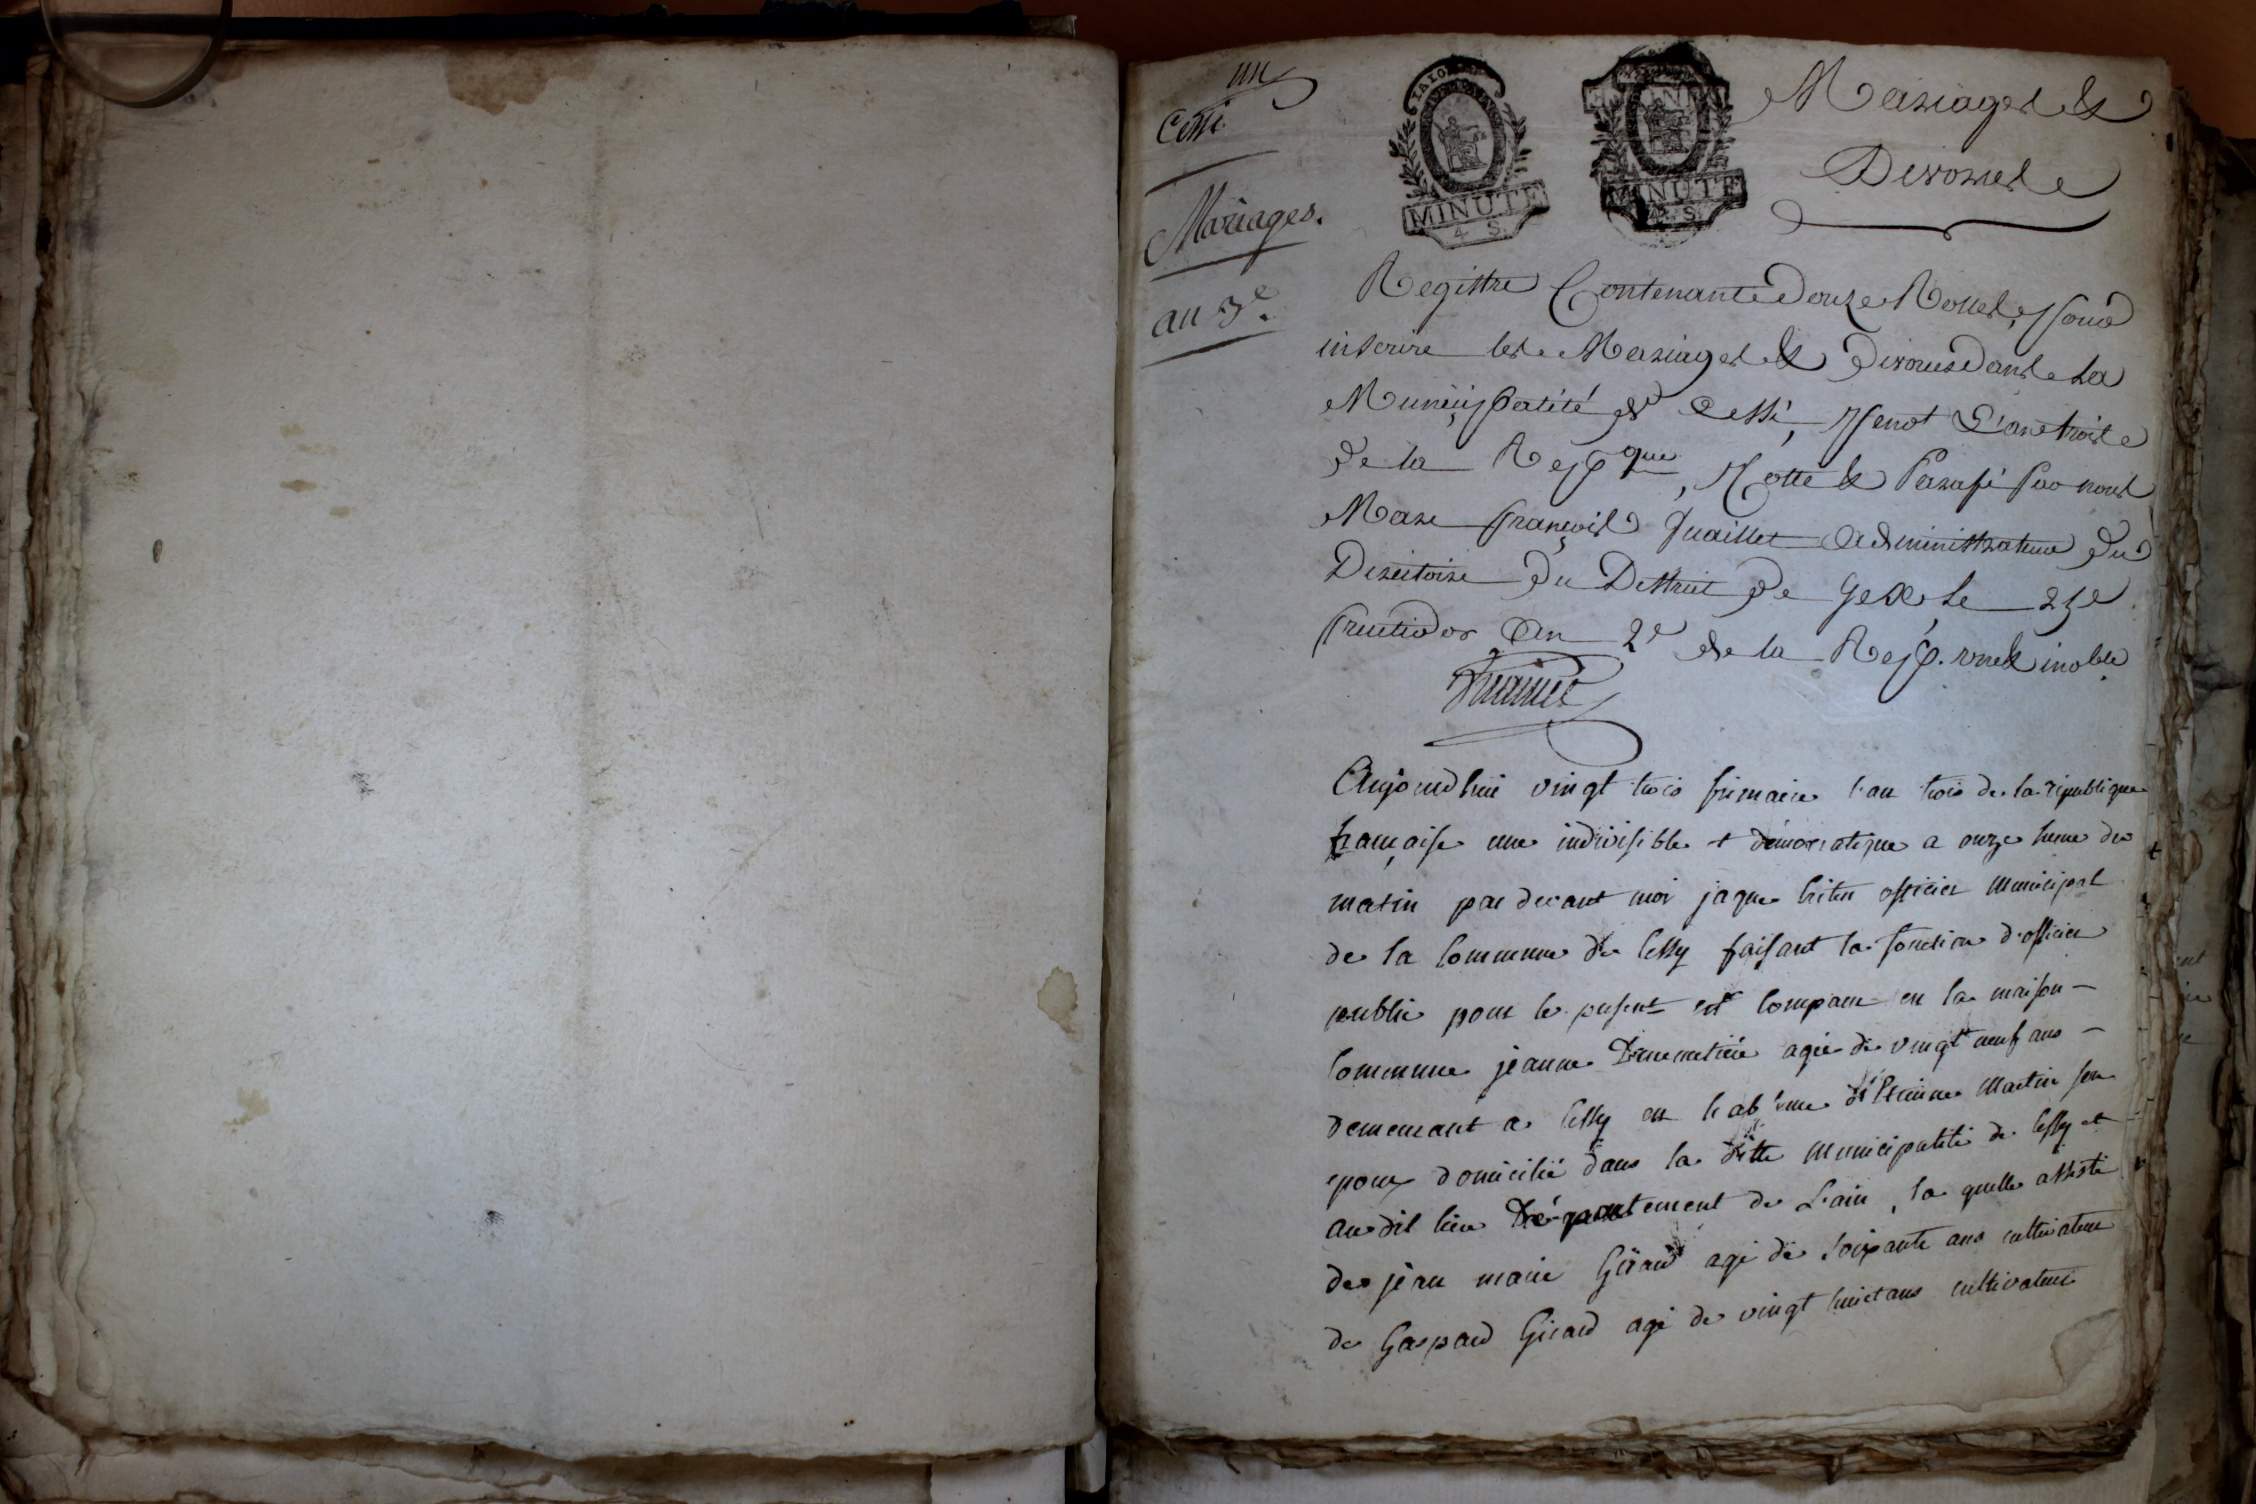 un
Cessi
Mariages.
an 3e.
MINUTE
4 S.
MINUTE
4 S.
Mariages &
Divorces
Registre Contenant Douze Rolles, pour
inscrire les Mariages & Divorces Dans la
Municipalité de Cessi, Pendt L'an trois
de la Repque, Cotté & Parafé par nous
Marc françois Administrateur du
Directoire du District de Gex, le 25e
fructidor an 2e de la Rep. une & indble
Aujourdhui vingt trois frimaire l'an trois de la république
française une indivisible + démocratique a onze heure du
matin par devant moi jaque officier municipal
de la Commune de Cessy faisant la fonction d'officier
public pour le present est comparu en la maison
Commune jeanne agée de vingt neuf ans
demeurant a Cessy en d'Etienne Martin son
epoux domicilié dans la ditte municipalité de Cessy et
au dit lieu Département de L'ain, la quelle assisté
de jean marie Girard agé de soixante ans cultivateur
de Gaspard Girard agé de vingt huict ans cultivateur